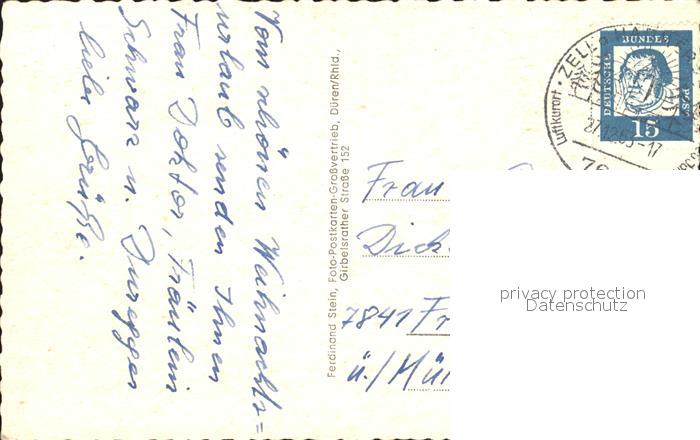 Vom schönen Weihnachts=
urlaub senden Ihnen
Frau Doktor, Fräulein
Schwarz u.
liebe Grüße.
Ferdinand Stein, Foto-Postkarten-Großvertrieb, Düren/Rhld.,
Girbelsrather Straße 152
Luftkurort · ZELL
DEUTSCHE
BUNDES
POST
15
Frau
Dick
7841
ü./Mül
privacy protection
Datenschutz